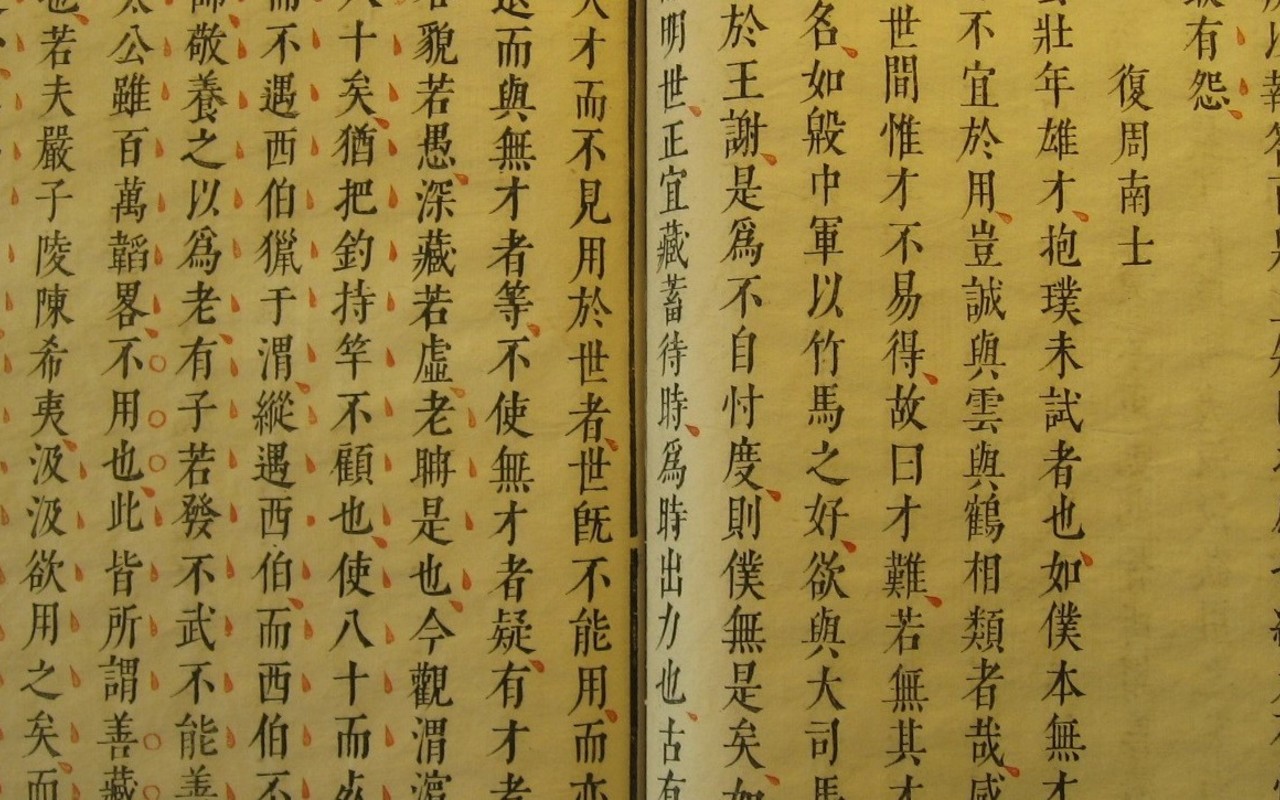 取有怨
復周南士
壯年雄才抱璞未試者也如僕本無才
不宜於用豈誠與雲與鶴相類者哉感
世間惟才不易得故曰才難若無其才
名如殷中軍以竹馬之好欲與大司馬
於王謝是爲不自忖度則僕無是矣如
明世正宜藏蓄待時爲時出力也古有
人才而不見用於世者世旣不能用而亦
退而與無才者等不使無才者疑有才者
若貌若愚深藏若虛老聃是也今觀渭濱
八十矣猶把釣持竿不顧也使八十而死
而不遇西伯獵于渭縱遇西伯而西伯不
師敬養之以爲老有子若發不武不能善
太公雖百萬韜畧不用也此皆所謂善藏
也若夫嚴子陵陳希夷汲汲欲用之矣而